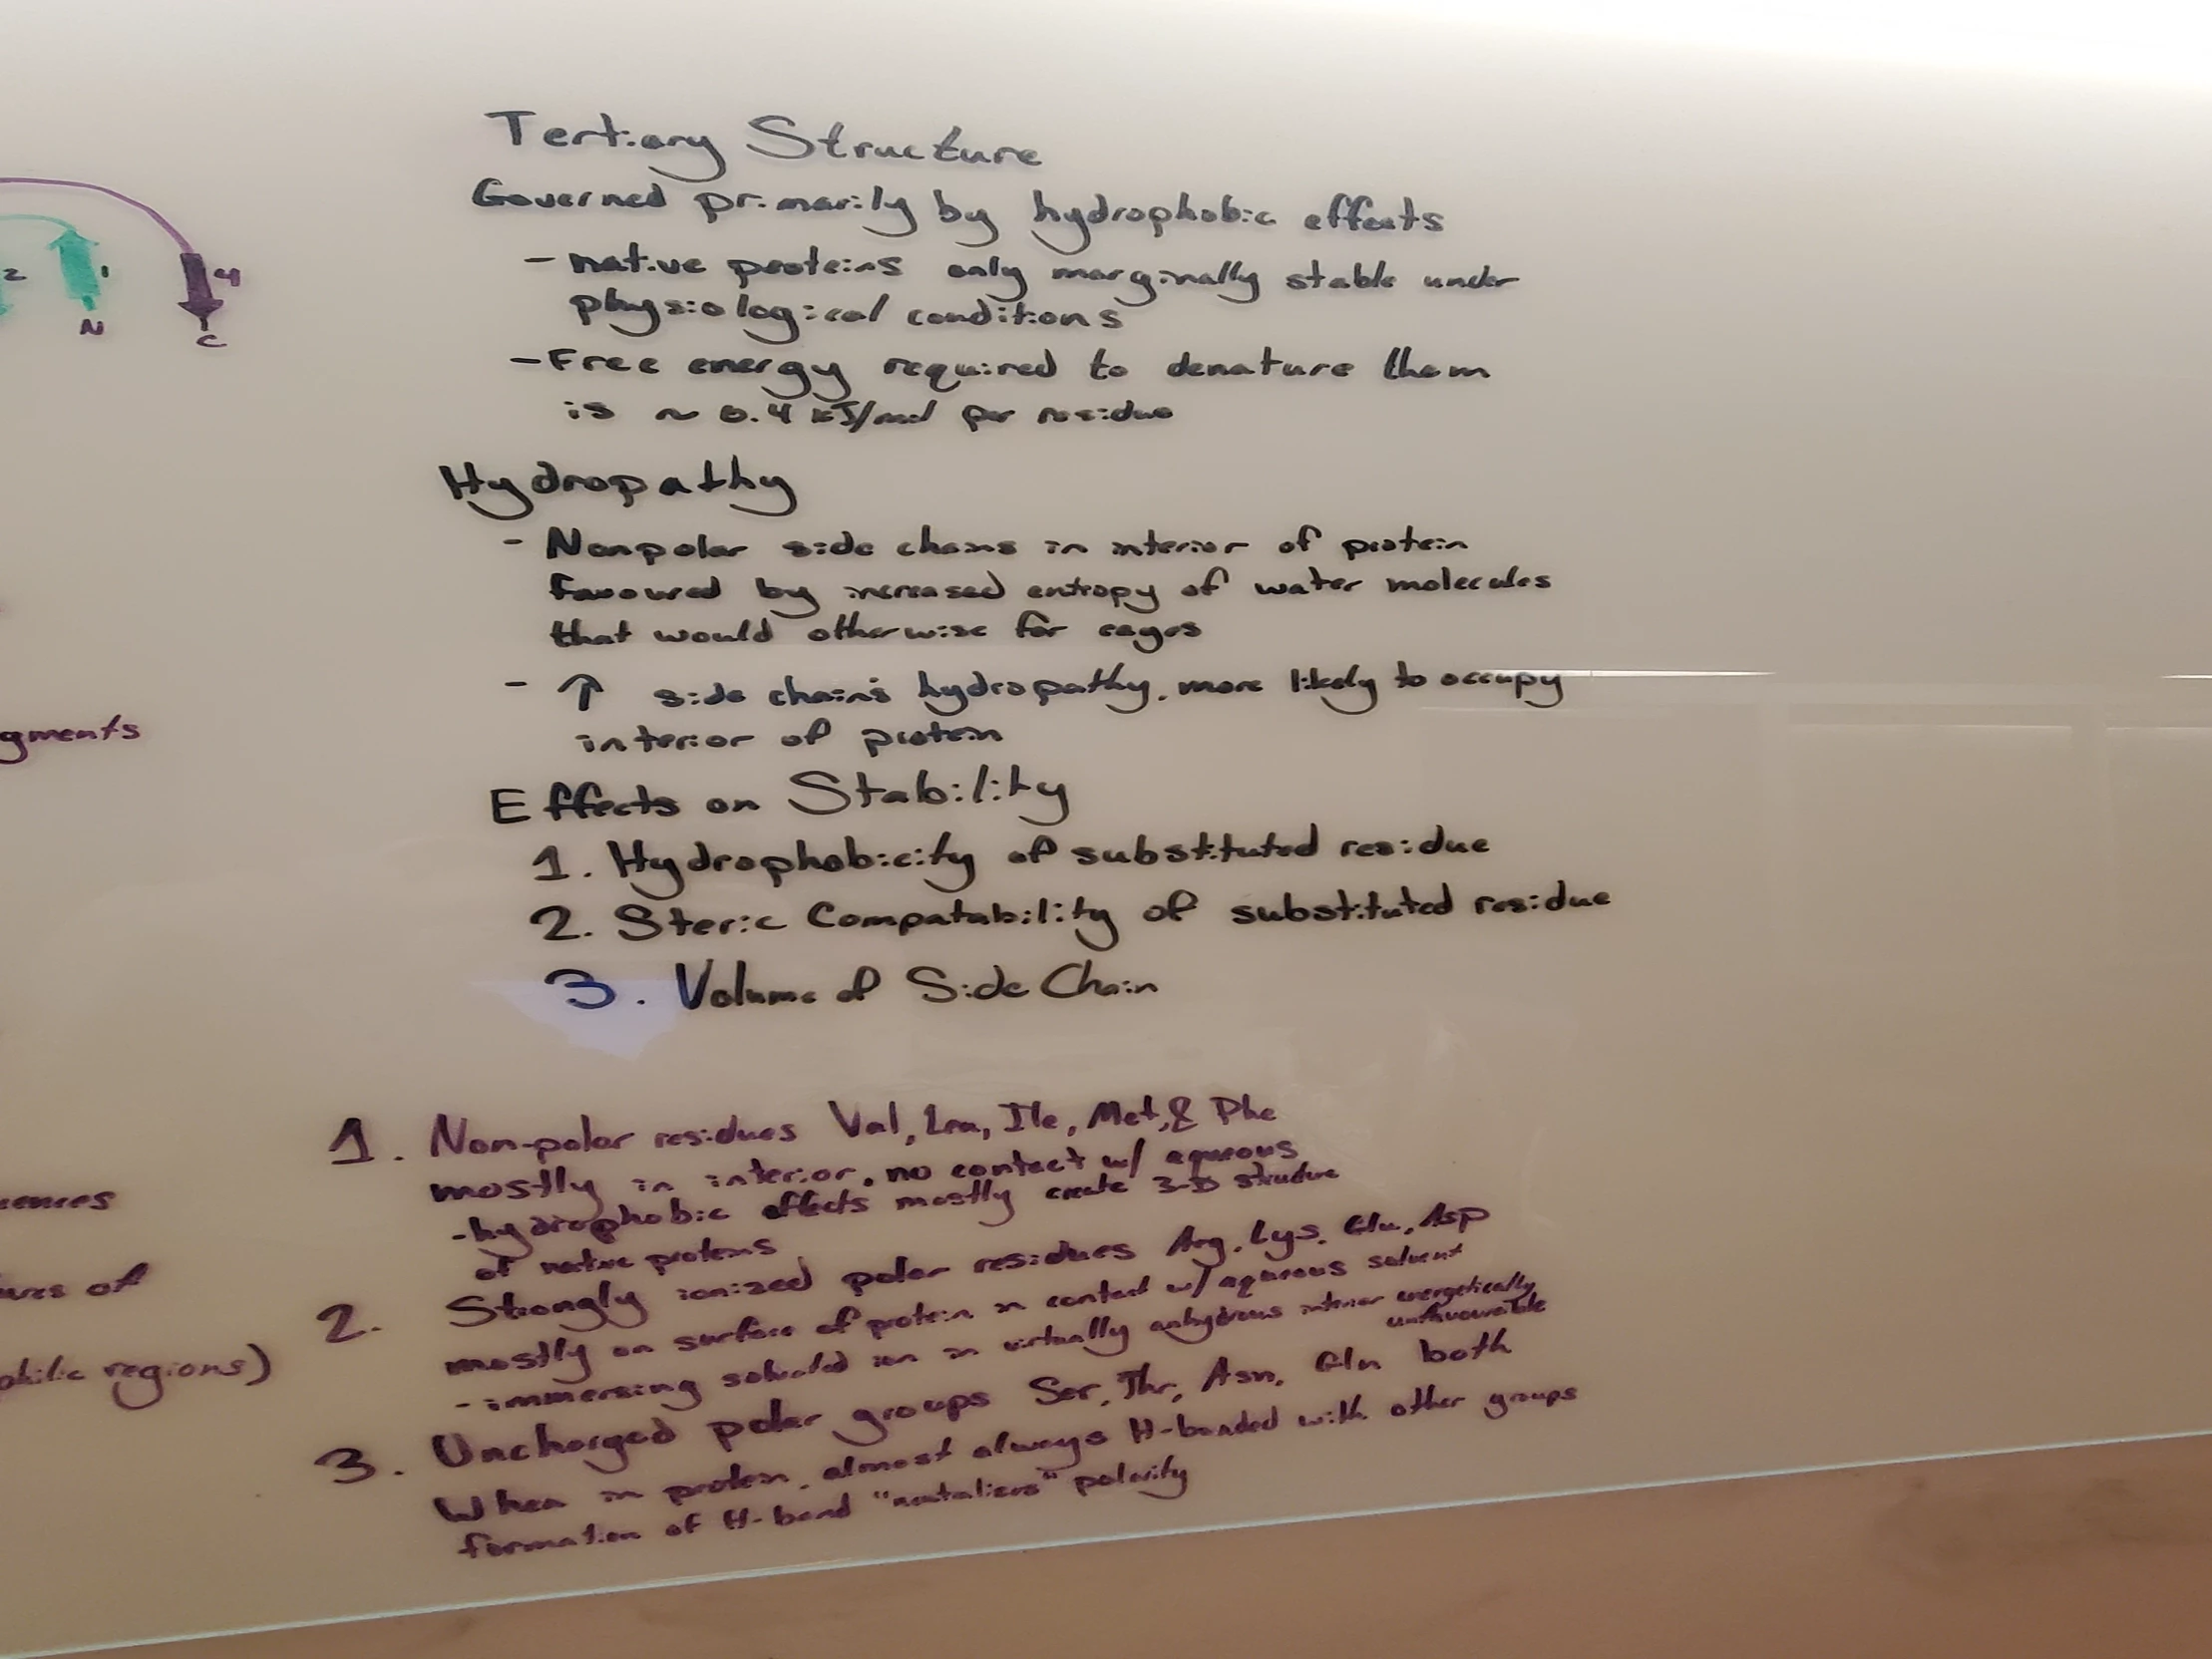 2
1
N
4
C
Tertiary Structure
Governed primarily by hydrophobic effects
- native proteins only marginally stable under
physiological conditions
- Free energy required to denature them
is ~ 0.4 kJ/mol per residue
Hydropathy
- Nonpolar side chains in interior of protein
favoured by increased entropy of water molecules
that would otherwise for cages
- ↑ side chain's hydropathy, more likely to occupy
interior of protein
Effects on Stability
1. Hydrophobicity of substituted residue
2. Steric Compatability of substituted residue
3. Volume of Side Chain
gments
ences
ures of
philic regions)
1. Non-polar residues Val, Leu, Ile, Met, & Phe
mostly in interior, no contact w/ aqueous
- hydrophobic effects mostly create 3-D structure
of native proteins
2. Strongly ionized polar residues Arg, Lys, Glu, Asp
mostly on surface of protein in contact w/ aqueous solvent
- immersing solvated ion in virtually anhydrous interior energetically
unfavourable
3. Uncharged polar groups Ser, Thr, Asn, Gln both
When in protein, almost always H-bonded with other groups
formation of H-bond "neutaliers" polarity